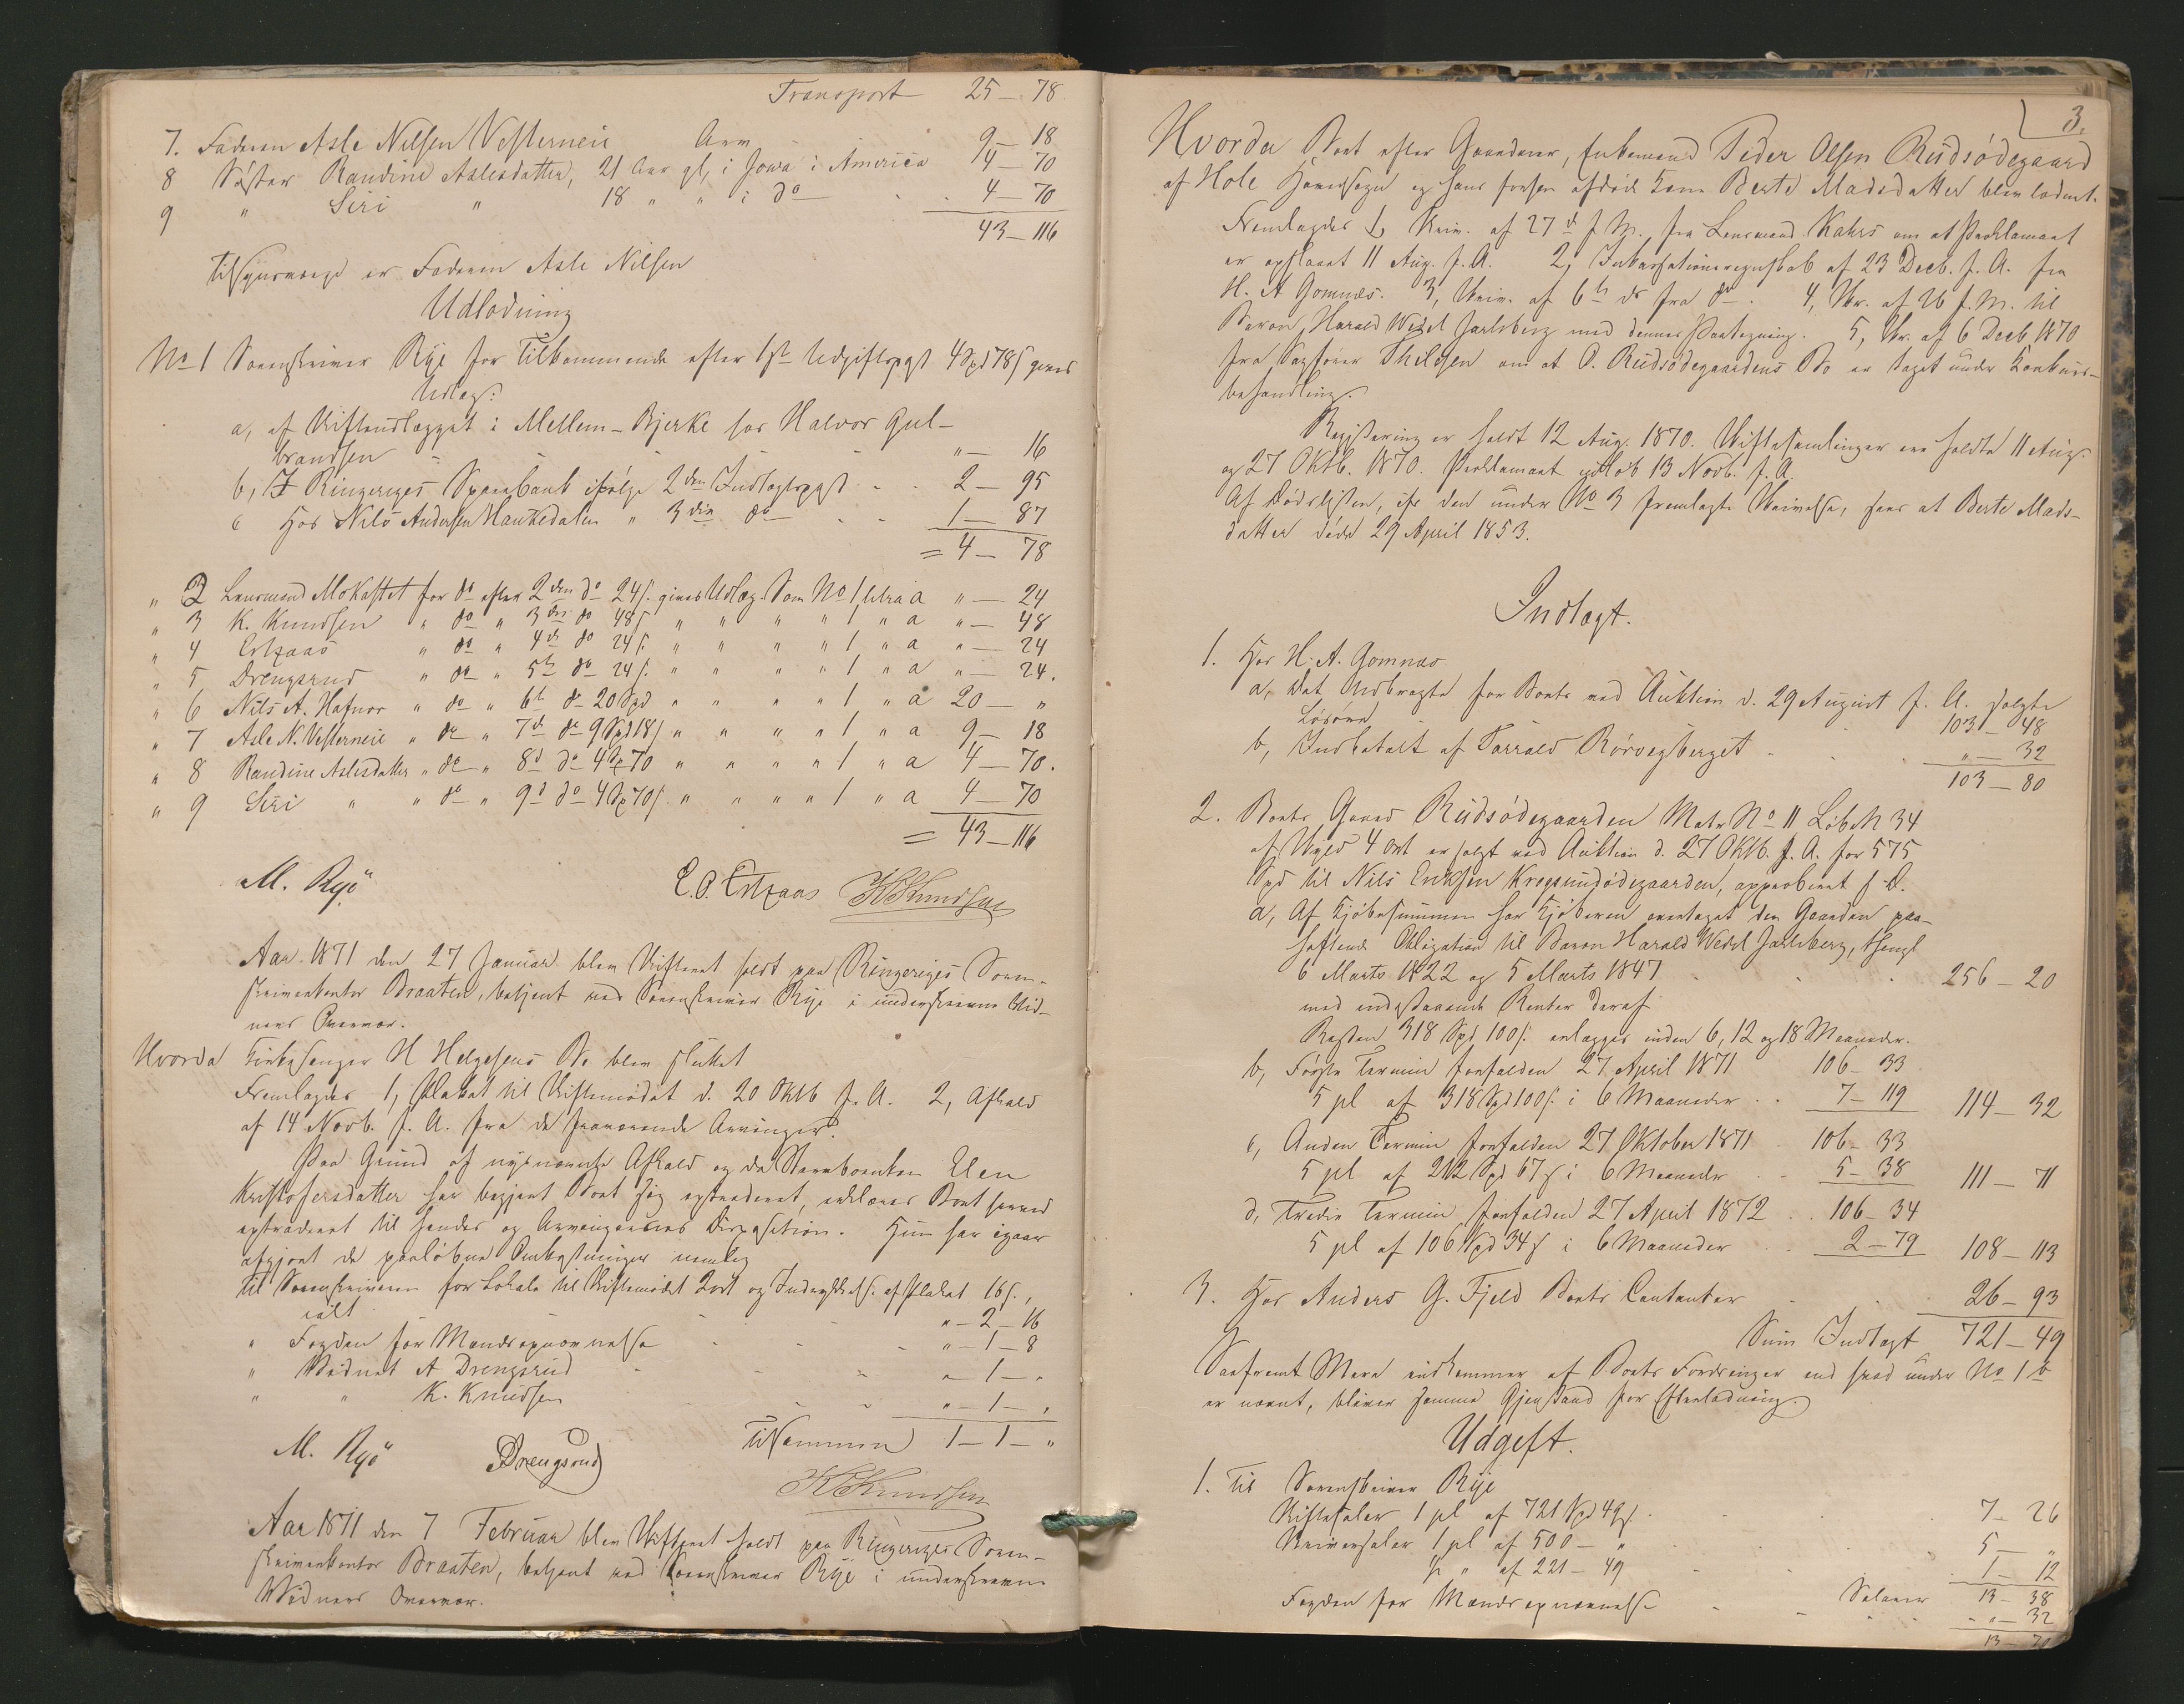 Transport 25 – 78
7. Faderen Asle Nilsen Vesterneie Arv 9 – 18
8 Søster Randine Aslesdatter, 21 Aar gl, i Jowa i America 4 – 70
9 " Siri " 18 " " i do 4 – 70
43 – 116
Tilsynsværge er Faderen Asle Nilsen
Udlodning
No 1 Sorenskriver Rye for Tilkommende efter 1ste Udgiftspost 4 Spd 78 s gives
Udlæg:
a, af Skifteudlægget i Mellem-Bjerke hos Halvor Gul-
brandsen " – 16
b, I Ringeriges Sparebank ifølge 2den Indtægtspost 2 – 95
c Hos Nils Andersen Haukedalen " 3die do 1 – 87
= 4 – 78
" 2 Lensmand Mokastet for do efter 2den do 24 s. gives Udlæg som No 1 litra a " – 24
" 3 K. Knudsen " do " 3die do 48 s " " " " 1 " a " – 48
" 4 Ertzaas " do " 4de do 24 s. " " " " 1 " a " – 24
" 5 Drengsrud " do " 5te do 24 s. " " " " 1 " a " – 24.
" 6 Nils A. Hafnor " do " 6te do 20 Spd " " " " 1 " a 20 – "
" 7 Asle N. Vesterneie " do " 7de do 9 Spd 18 s " " " " 1 " a 9 – 18
" 8 Randine Aslesdatter " do " 8de do 4 Sp 70 " " " " 1 " a 4 – 70.
" 9 Siri " " do " 9de do 4 Sp 70 s. " " " " 1 " a 4 – 70
= 43 – 116
M. Rye E. O. Ertzaas K Knudsen
Aar 1871 den 27 Januar blev Skifteret holdt paa Ringeriges Soren-
skriverkontor Braaten, betjent ved Sorenskriver Rye i underskrevne Vid-
ners Overvær.
Hvorda Kirkesanger H Helgesens Bo blev sluttet
Fremlagdes 1, Plakat til Skiftemødet d. 20 Oktb f. A. 2, Afkald
af 14 Novb. f. A. fra de fraværende Arvinger.
Paa Grund af nysnævnte Afkald og da Stervboenken Elen
Kristofersdatter har begjært Boet sig extraderet, erklæres Boet herved
extraderet til hendes og Arvingernes Disposition. Hun har igaar
afgjort de paaløbne Omkostninger nemlig
til Sorenskriveren for Lokale til Skiftemødet 2 ort og Indrykkelse af Plakat 16 s.,
ialt " – 2 – 16
" Fogden for Mændsopnævnelse " – 1 – 8
" Vidnet A Drengsrud " – 1 – "
" " K. Knudsen " – 1 – "
Tilsammen 1 – 1 – "
M. Rye Drengsrud
K Knudsen
Aar 1871 den 7 Februar blev Skifteret holdt paa Ringeriges Soren-
skriverkontor Braaten, betjent ved Sorenskriver Rye i underskrevne
Vidners Overvær.
3.
Hvorda Boet efter Gaardmand, Enkemand Peder Olsen Rudsødegaard
af Hole Hovedsogn og hans forhen afdøde Kone Berte Madsdatter blev lodnet.
Fremlagdes 1, Skriv. af 27de f. M. fra Lensmand Kahrs om at Proklamaet
er opslaaet 11 Aug. f. A. 2, Inkassationsregnskab af 23 Decb. f. A. fra
H. A Gomnæs. 3, Skriv. af 6te ds fra do. 4, Skr. af 26 f. M. til
Baron Harald Wedel Jarlsberg med dennes Paategning. 5, Skr. af 6 Decb 1870
fra Sagfører Thilesen om at O. Rudsødegaardens Bo er taget under Konkurs-
behandling.
Registrering er holdt 12 Aug. 1870. Skiftesamlinger ere holdte 11 Aug.
og 27 Oktb. 1870. Proklamaet udløb 13 Novb. f. A.
Af Dødslisten, cfr den under No 3 fremlagte Skrivelse, sees at Berte Mads-
datter døde 29 April 1853.
Indtægt.
1. Hos H. A. Gomnæs
a, det Indbragte for Boets ved Auktion d. 29 August f. A. solgte
Løsøre 103 – 48
b, Indbetalt af Torvald Rørvegberget " – 32
103 – 80
2. Boets Gaard Rudsødegaarden Matr No 11 Løb. N 34
af Skyld 4 ort er solgt ved Auktion d. 27 Oktb. f. A. for 575
Spd til Nils Eriksen Krogsundødegaarden, approberet s. D.
a, Af Kjøbesummen har Kjøberen overtaget den Gaarden paa-
heftende Obligation til Baron Harald Wedel Jarlsberg, thingl
6 Marts 1822 og 5 Marts 1847 256 – 20
med indestaaende Renter deraf
Resten 318 Spd 100 s. erlægges inden 6, 12 og 18 Maaneder.
b, Første Termin forfalden 27 April 1871 106 – 33
5 pCt af 318 Spd 100 s. i 6 Maaneder 7 – 119 114 – 32
c, Anden Termin forfalden 27 Oktober 1871 106 – 33
5 pCt af 212 Spd 67 s i 6 Maaneder 5 – 38 111 – 71
d, Tredie Termin forfalden 27 April 1872 106 – 34
5 pCt af 106 Spd 34 s i 6 Maaneder 2 – 79 108 – 113
3. Hos Anders G. Fjeld Boets Contanter 26 – 93
Sum Indtægt 721 – 49
Saafremt Mere indkommer af Boets Fordringer end hvad under No 1 b
er nævnt, bliver samme Gjenstand for Efterlodning.
Udgift.
1. Til Sorenskriver Rye
Skiftesalær 1 pCt af 721 Spd 49 s. 7 – 26
Skriversalær 1 pCt af 500 – " 5 – "
½ " af 221 – 49 1 – 12
Salærer 13 – 38
Fogden for Mændsopnævnelse " – 32
13 – 70